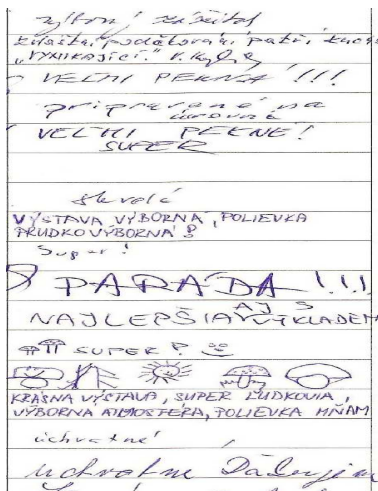 výborný zážitok
"VYNIKAJÍCÍ."
VEĽMI PEKNÁ !!!
pripravené na
úrovni
VEĽMI PEKNE!
SUPER
skvelé
VÝSTAVA VÝBORNÁ, POLIEVKA
PRUDKOVÝBORNÁ!
Super!
PARÁDA !!!
NAJLEPŠIA AJ S VÝKLADEM
SUPER!
KRÁSNA VÝSTAVA, SUPER ĽUDKOVIA,
VÝBORNÁ ATMOSFÉRA, POLIEVKA MŇAM
úchvatné!
úchvatne Ďakujem